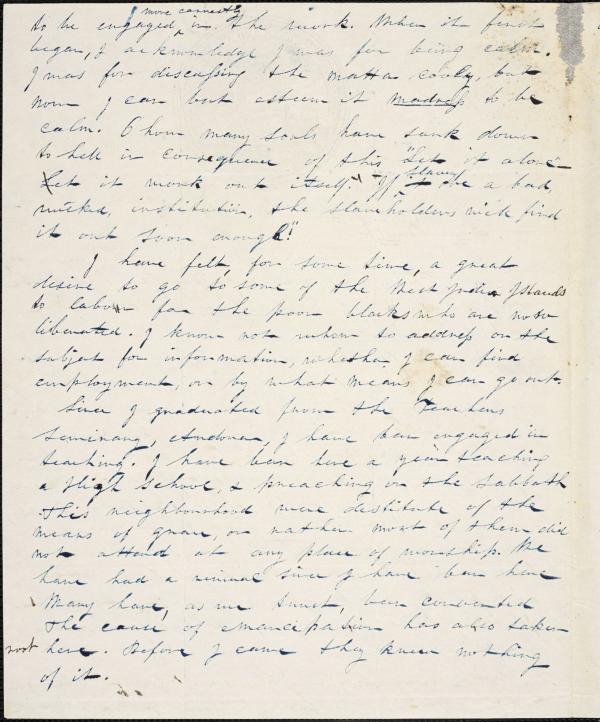 more earnestly
to be engaged ^ in the work. When it first
began, I acknowledge I was for being calm.
I was for discussing the matter cooly, but
now I can but esteem it madness to be
calm. O how many souls have sunk down
to hell in consequence of this "Let it alone"
Let it work out itself." "If slavery be a bad,
wicked, institution, the slaveholders will find
it out soon enough!"
I have felt, for some time, a great
desire to go to some of the West India Islands
to labour for the poor blacks who are now
liberated. I know not whom to address on the
subject for information, whether I can find
employment, or by what means I can go out.
Since I graduated from the Teachers
Seminary, Andover, I have been engaged in
teaching. I have been here a year teaching
a High School, & preaching on the Sabbath
This neighbourhood were destitute of the
means of grace, or rather most of them did
not attend at any place of worship. We
have had a revival since I have been here
Many have, as we trust, been converted
The cause of emancipation has also taken
root here. Before I came they knew nothing
of it.